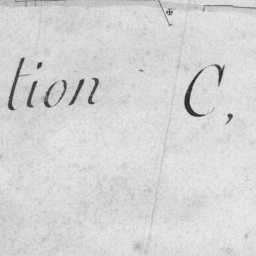 tion C,